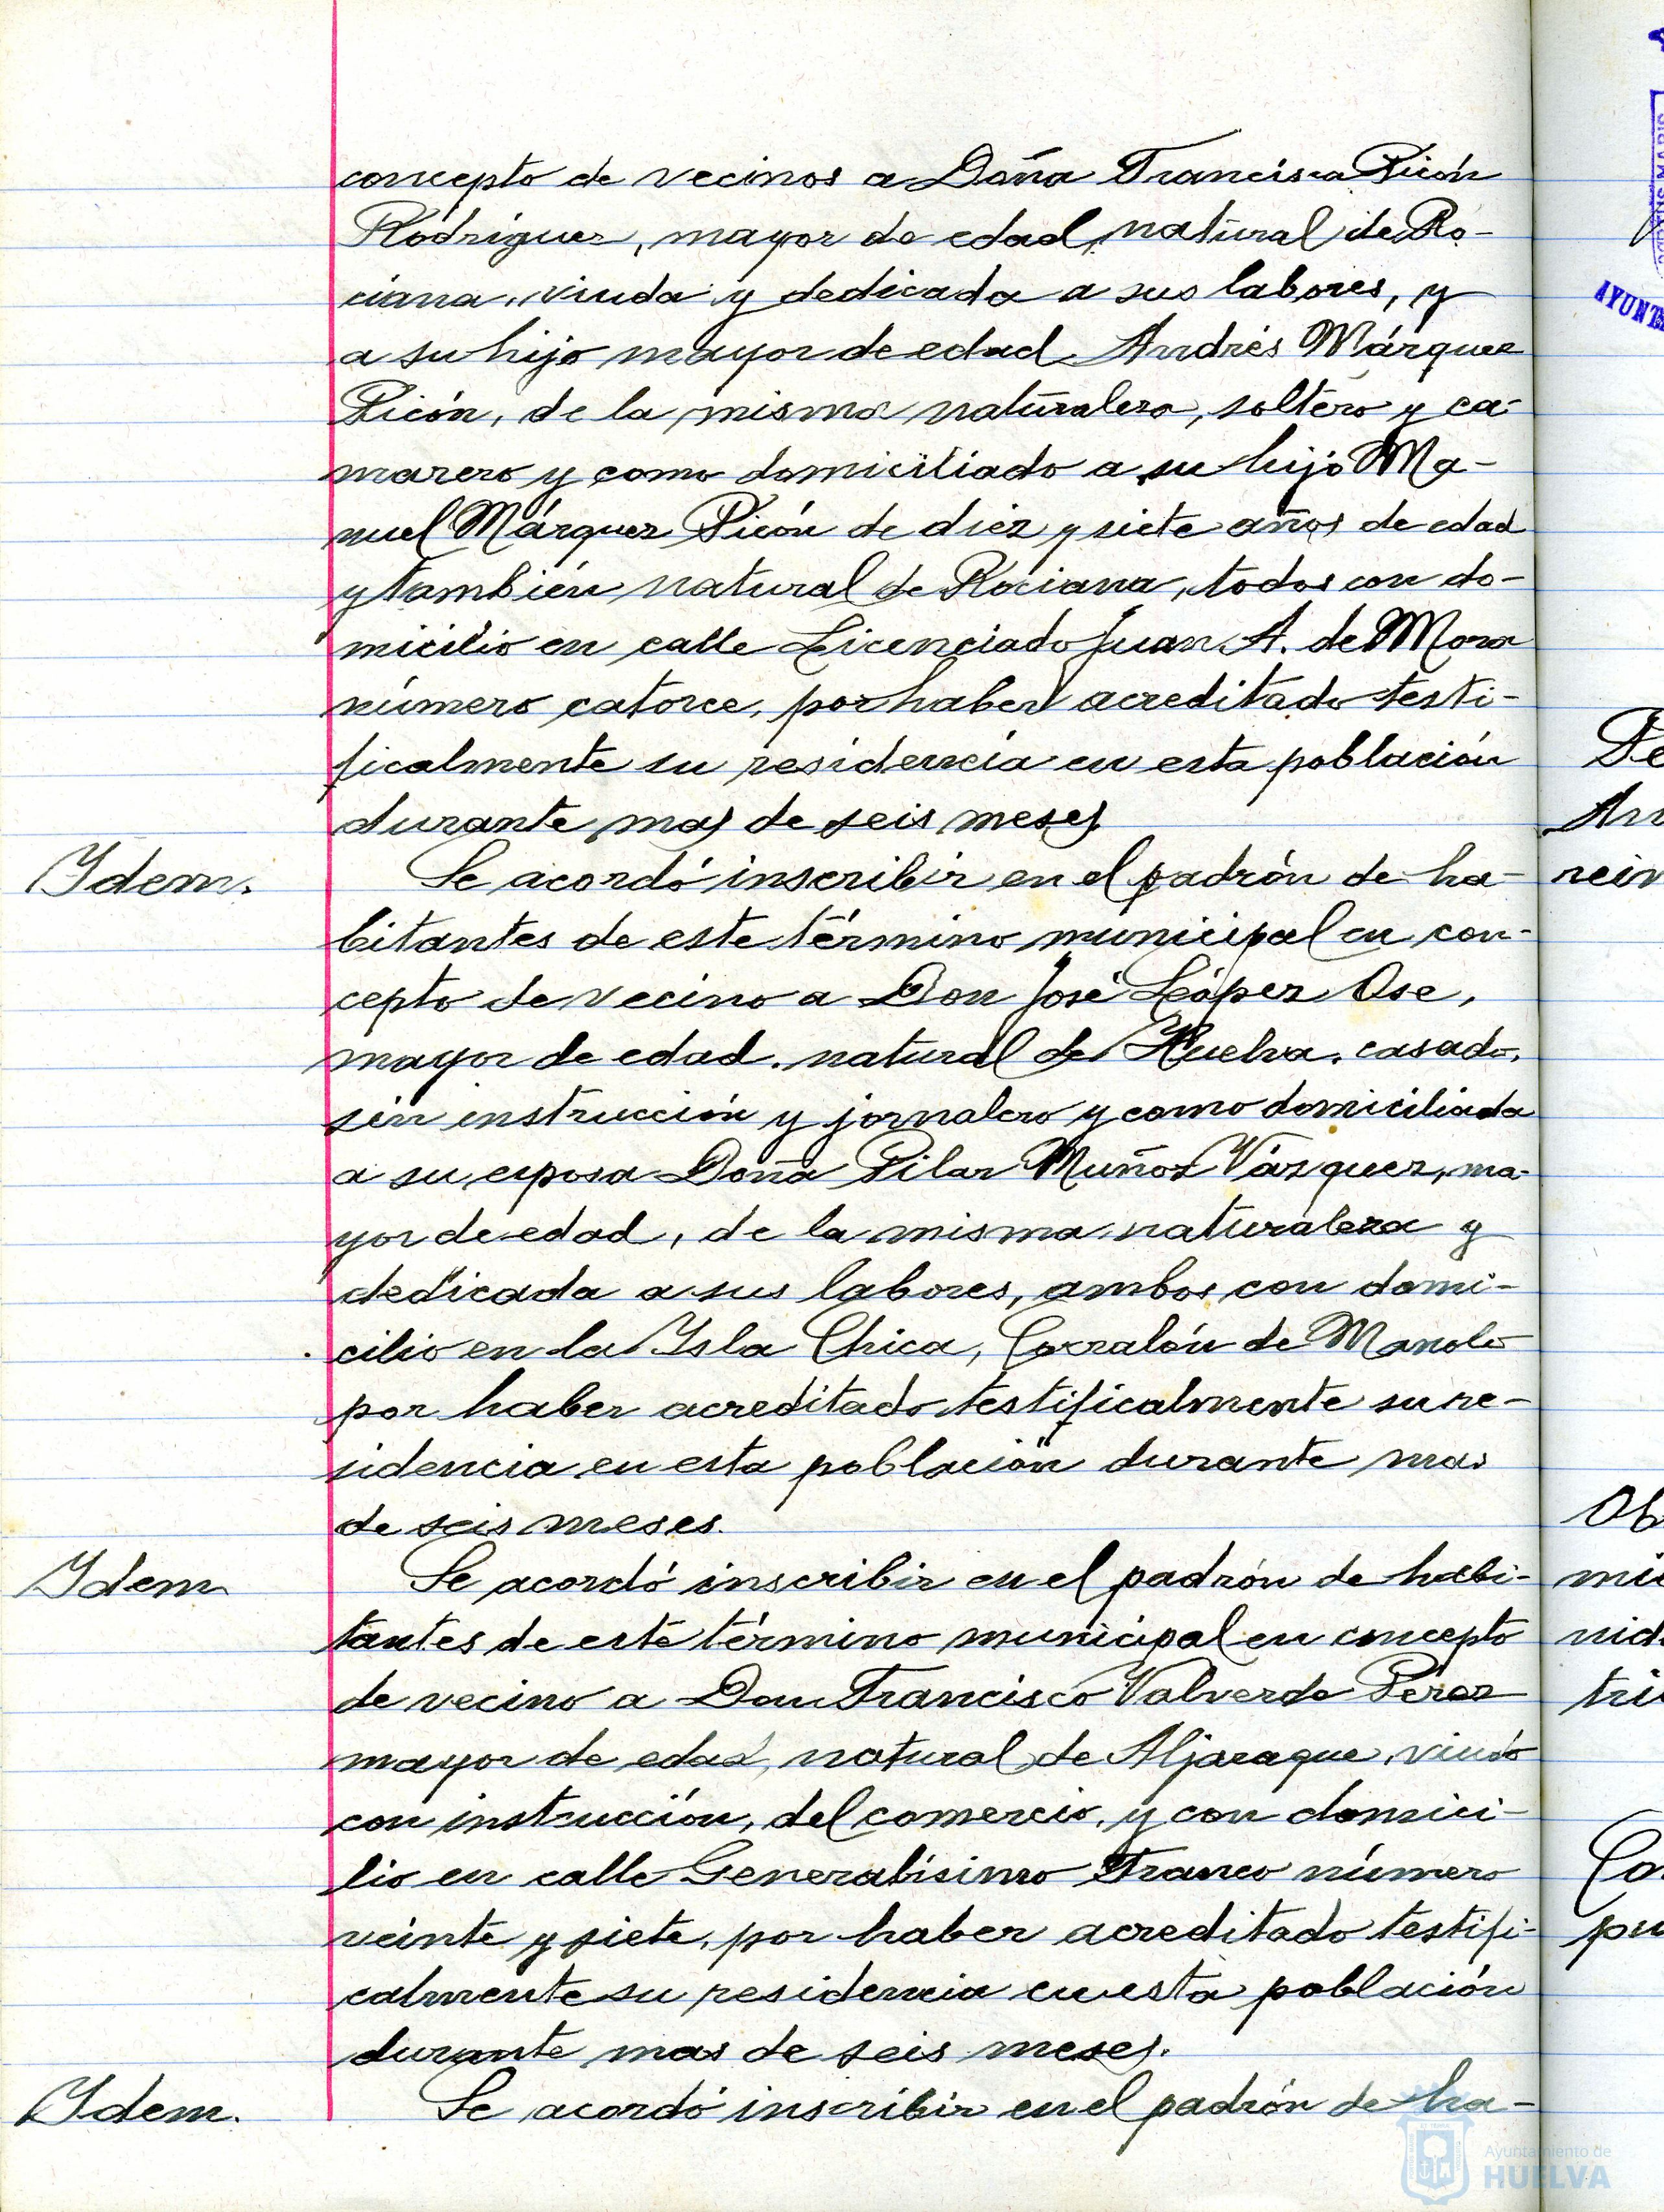 concepto de vecinos a Doña Francisca Picón
Rodríguez, mayor de edad, natural de Ro-
ciana, viuda y dedicada a sus labores, y
a su hijo mayor de edad Andrés Márquez
Picón, de la misma naturaleza, soltero y ca-
marero y como domiciliado a su hijo Ma-
nuel Márquez Picón de diez y siete años de edad
y también natural de Rociana, todos con do-
micilio en calle Licenciado Juan A. de Mora
número catorce, por haber acreditado testi-
ficalmente su residencia en esta población
durante mas de seis meses
Ydem. Se acordó inscribir en el padrón de ha-
bitantes de este término municipal en con-
cepto de vecino a Don José López Ose,
mayor de edad, natural de Huelva, casado,
sin instrucción y jornalero y como domiciliada
a su esposa Doña Pilar Muñoz Vázquez, ma-
yor de edad, de la misma naturaleza y
dedicada a sus labores, ambos con domi-
cilio en la Ysla Chica, Corralón de Manolo
por haber acreditado testificalmente su re-
sidencia en esta población durante mas
de seis meses.
Ydem Se acordó inscribir en el padrón de habi-
tantes de este término municipal en concepto
de vecino a Don Francisco Valverde Pérez
mayor de edad, natural de Aljaraque, viudo
con instrucción, del comercio, y con domici-
lio en calle Generalísimo Franco número
veinte y siete, por haber acreditado testifi-
calmente su residencia en esta población
durante mas de seis meses.
Ydem. Se acordó inscribir en el padrón de ha-
AYUNT
De
An
rein
Ob
mi
nid
tri
Co
pu
Ayuntamiento de
HUELVA